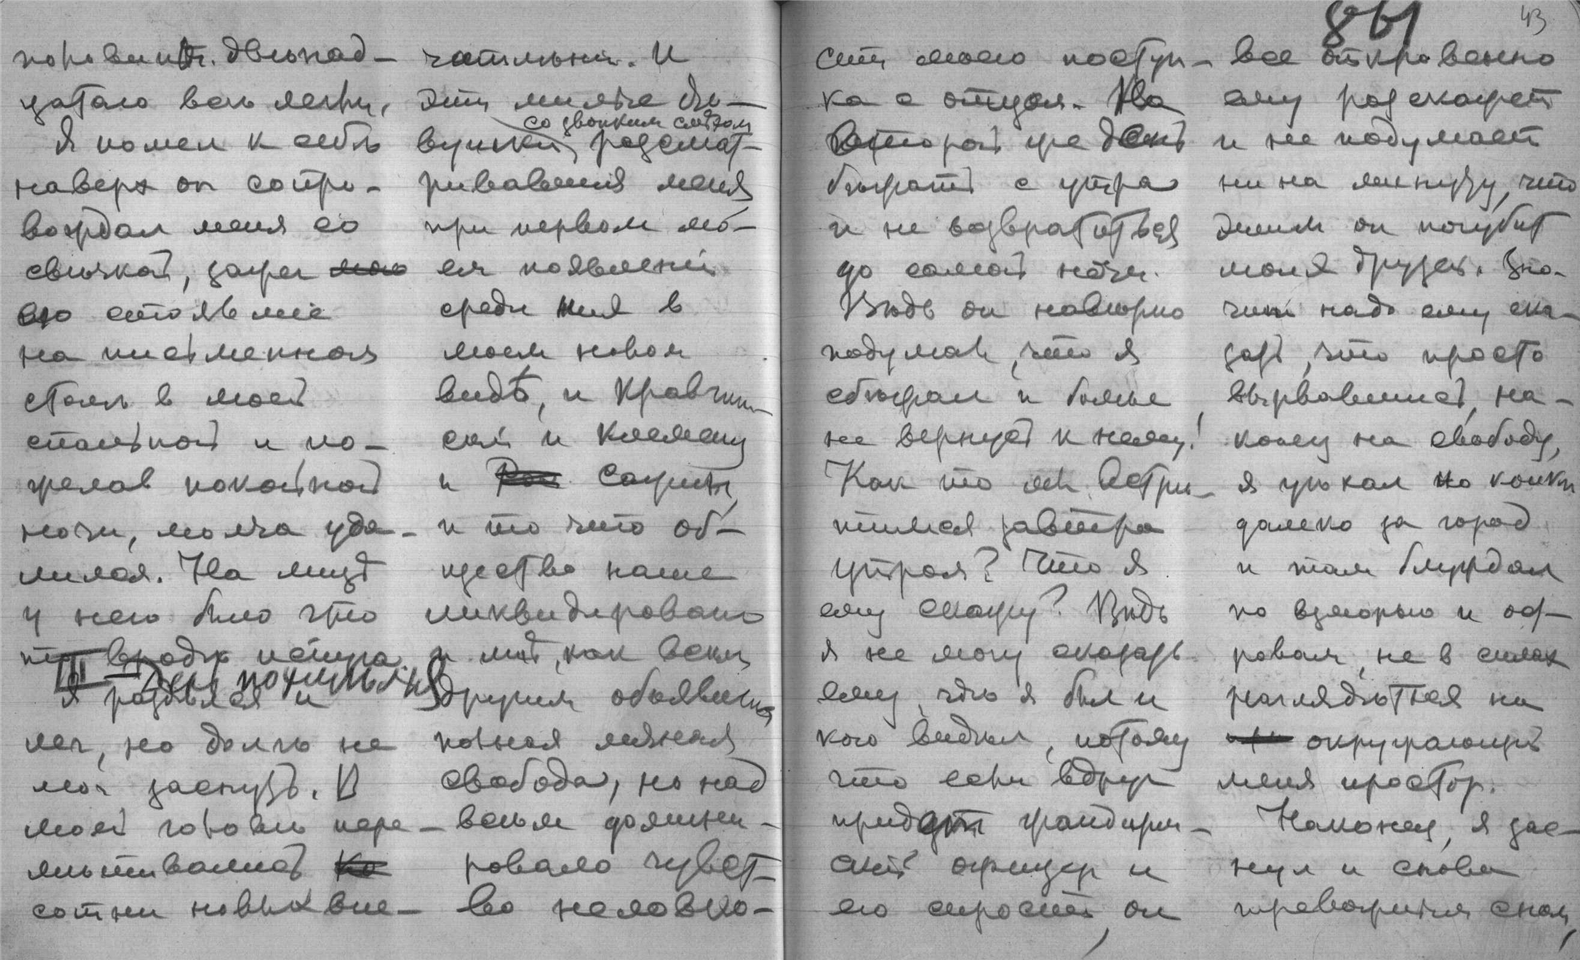 половинѣ двѣнад-
цатаго всѣ легли.
Я пошел к себѣ
наверх он сопро-
вождал меня со
свѣчкой, зажег
его стоявшіе
на письменном
столѣ в моей
спальной и по-
желав покойной
ночи, молча уда-
лился. На лицѣ
у него было что
то вродѣ испуга.
III День похмѣлья
Я раздѣлся и
лег, но долго не
мог заснуть. В
моей головѣ пере-
мѣшивались
сотни новых впе-
чатлѣній. И
эти милые дѣ-
со звонким смѣхом
вушки, разсмат-
ривавшія меня
при первом мо-
ем появленіи
среди них в
моем новом
видѣ, и Кравчин-
скій и Клеменц
и Саблин,
и то что об-
щество наше
ликвидировано
и мнѣ, как всѣм
другим объявлена
полная личная
свобода, но над
всѣм доминн-
ровало чувст-
во неловко-
841
43
сти моего поступ-
ка с отцом. На
второй же день
бѣжать с утра
и не возвратиться
до самой ночи.
Вѣдь он навѣрно
подумал, что я
сбѣжал и болѣе
не вернусь к нему!
Как то мы встрѣ-
тимся завтра
утром? Что я
ему скажу? Вѣдь
я не могу сказать
ему, гдѣ я был и
кого видѣл, потому
что если вдруг
придет жандарм-
скій офицер и
его спросит, он
все откровенно
ему разскажет
и не подумает
ни на минуту, что
этим он погубит
моих друзей. Зна-
чит надо ему ска-
зать, что просто
вырвавшись, на-
конец на свободу,
я уѣхал на конкѣ
далеко за город
и там блуждал
по взморью и ост-
ровам, не в силах
наглядѣться на
окружающій
меня простор.
Наконец, я зас-
нул и снова
тревожным сном,